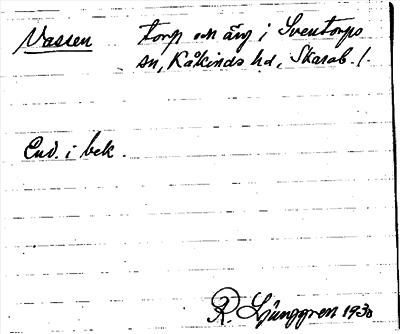 Vassen torp och äng i Sventorps
sn, Kåkinds hd, Skarab. l.
End. i bek.
R. Ljunggren 1930